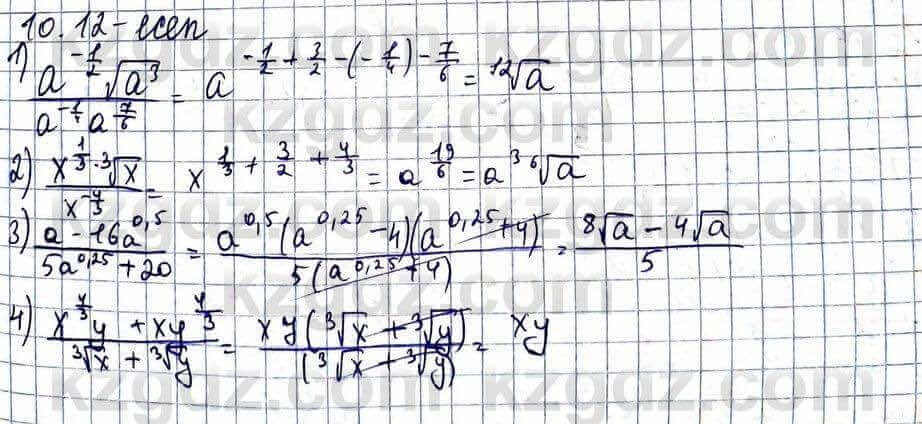 10.12-есеп
1) \frac{a^{-\frac{1}{2}} \sqrt{a^3}}{a^{-\frac{1}{4}} a^{\frac{7}{6}}} = a^{-\frac{1}{2} + \frac{3}{2} - (-\frac{1}{4}) - \frac{7}{6}} = \sqrt[12]{a}
2) \frac{x^{\frac{1}{3}} \cdot \sqrt[3]{x}}{x^{-\frac{4}{3}}} = x^{\frac{1}{3} + \frac{3}{2} + \frac{4}{3}} = a^{\frac{19}{6}} = a^3 \sqrt[6]{a}
3) \frac{a - 16a^{0,5}}{5a^{0,25} + 20} = \frac{a^{0,5}(a^{0,25} - 4)(a^{0,25} + 4)}{5(a^{0,25} + 4)} = \frac{8\sqrt{a} - 4\sqrt{a}}{5}
4) \frac{x^{\frac{4}{3}} y + xy^{\frac{4}{3}}}{\sqrt[3]{x} + \sqrt[3]{y}} = \frac{xy(\sqrt[3]{x} + \sqrt[3]{y})}{(\sqrt[3]{x} + \sqrt[3]{y})} = xy